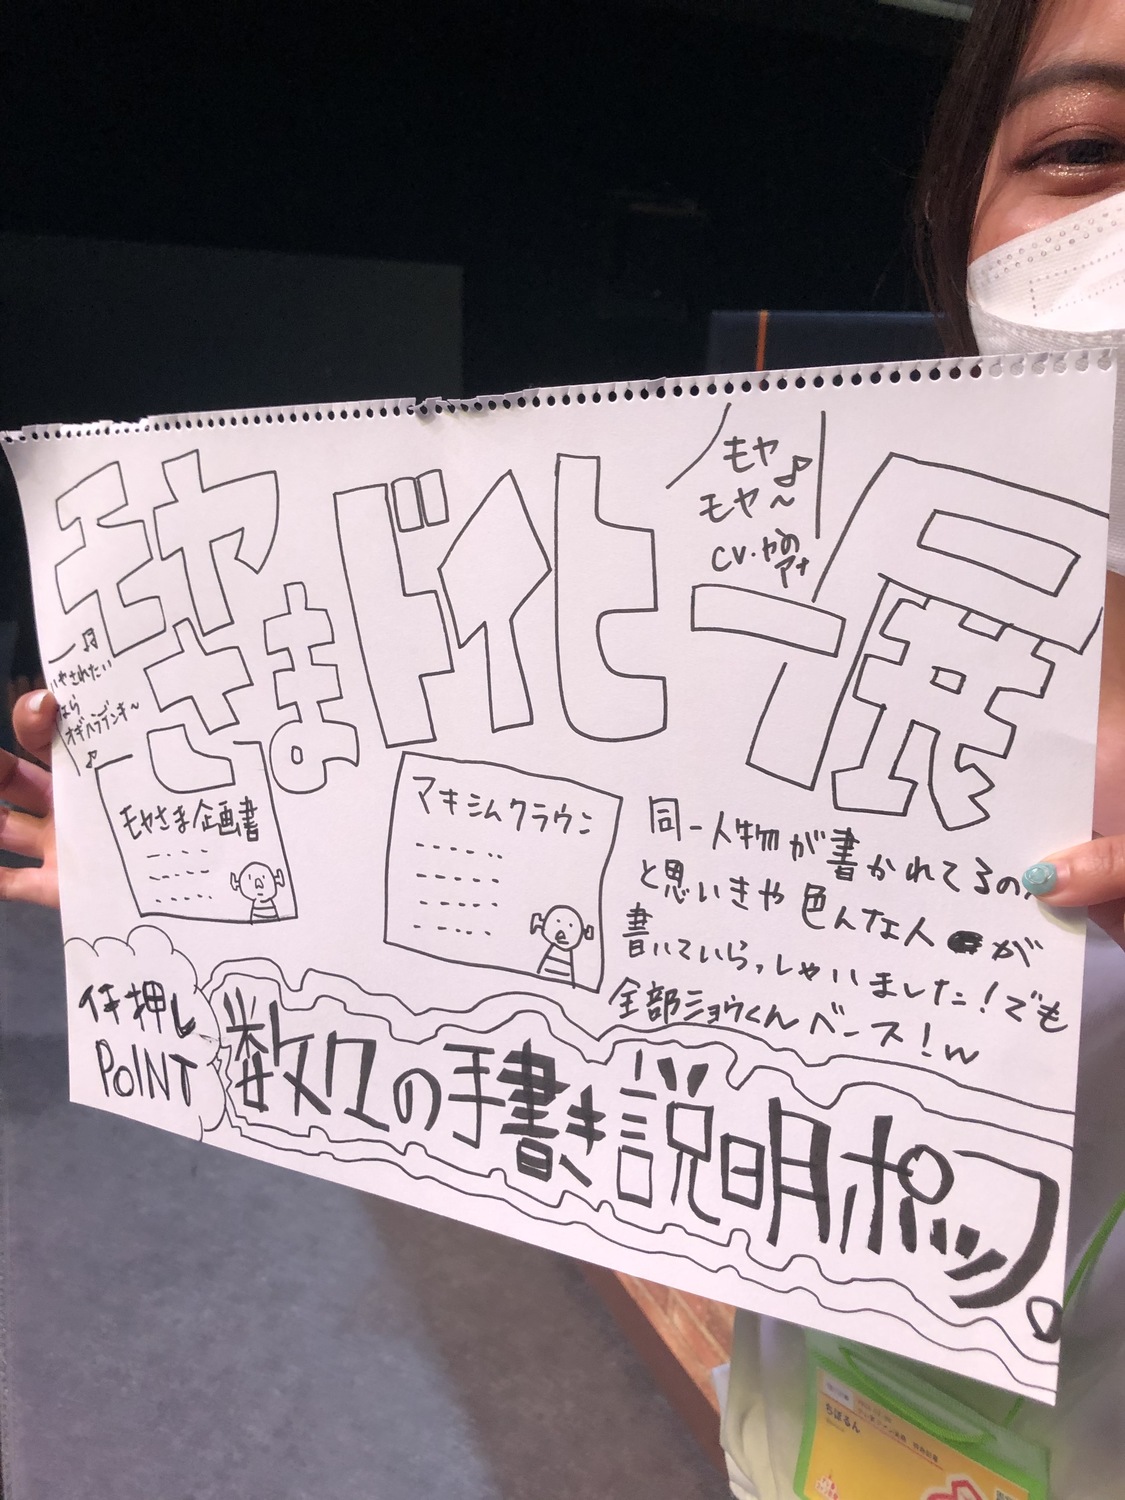 モヤさまド化一展
モヤ♪
モヤ〜
CV.やのアナ
いやされたい
なら
オギハラブンキ〜
♪
モヤさま企画書
マキシムクラウン
同一人物が書かれてるの、
と思いきや色んな人が
書いていらっしゃいました!でも
全部ショウくんベース!w
イチ押し
POINT
数々の手書き説明ポップ。
ちぽるん